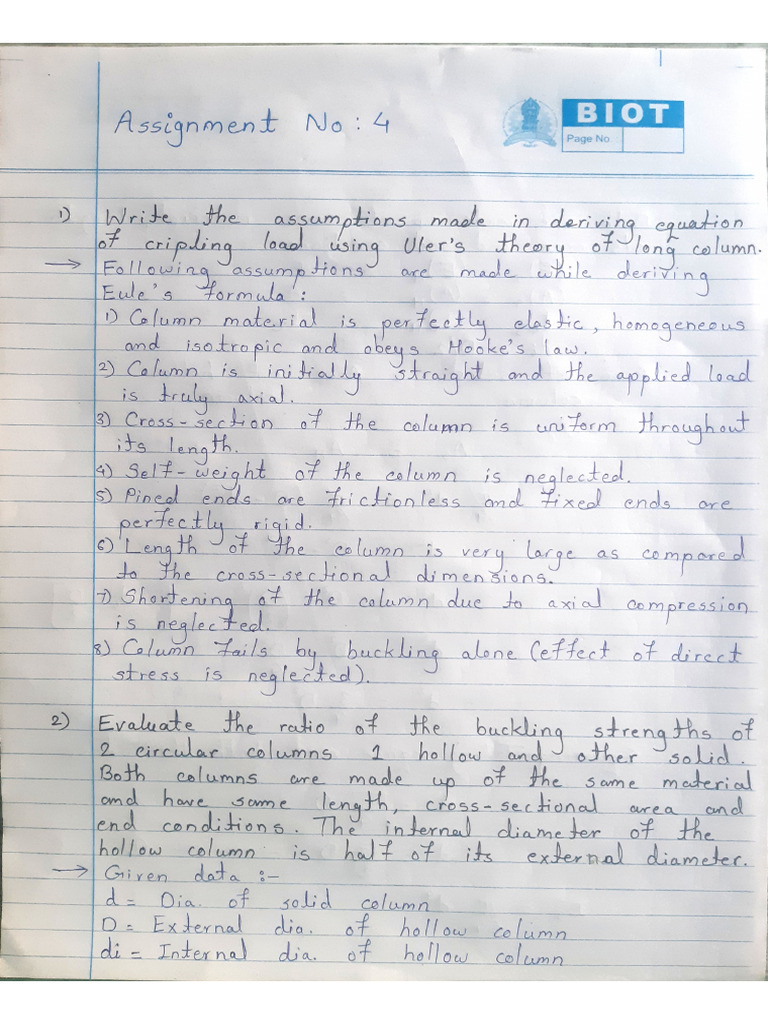 Assignment No: 4
BIOT
Page No
1) Write the assumptions made in deriving equation
of cripling load using Uler's theory of long column.
→ Following assumptions are made while deriving
Eule's formula:
1) Column material is perfectly elastic, homogeneous
and isotropic and obeys Hooke's law.
2) Column is initially straight and the applied load
is truly axial.
3) Cross-section of the column is uniform throughout
its length.
4) Self-weight of the column is neglected.
5) Pined ends are frictionless and fixed ends are
perfectly rigid.
6) Length of the column is very large as compared
to the cross-sectional dimensions.
7) Shortening of the column due to axial compression
is neglected.
8) Column fails by buckling alone (effect of direct
stress is neglected).
2) Evaluate the ratio of the buckling strengths of
2 circular columns 1 hollow and other solid.
Both columns are made up of the same material
and have same length, cross-sectional area and
end conditions. The internal diameter of the
hollow column is half of its external diameter.
→ Given data :-
d = Dia. of solid column
D = External dia. of hollow column
di = Internal dia. of hollow column